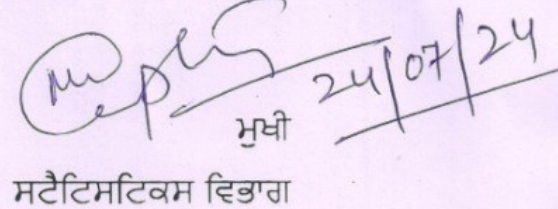 24/07/24
ਮੁਖੀ
ਸਟੈਟਿਸਟਿਕਸ ਵਿਭਾਗ